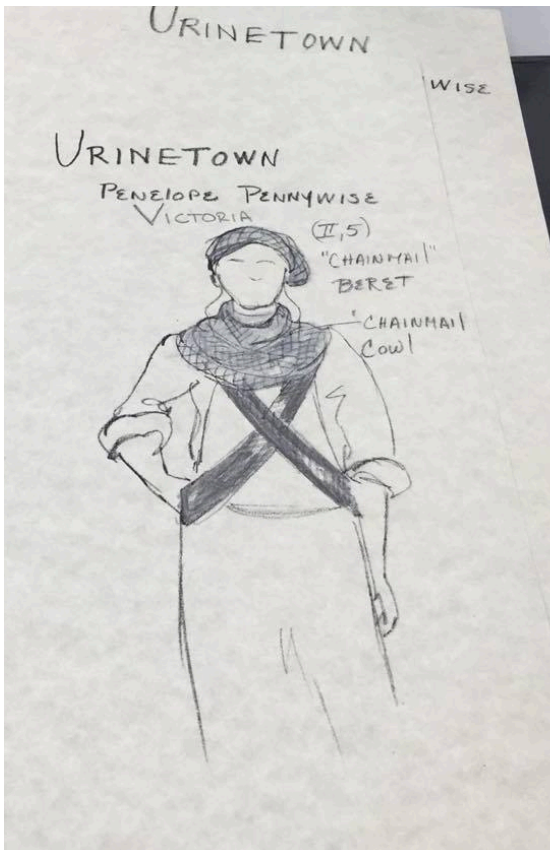 URINETOWN
WISE
URINETOWN
PENELOPE PENNYWISE
VICTORIA
(II, 5)
"CHAINMAIL"
BERET
"CHAINMAIL
COWL